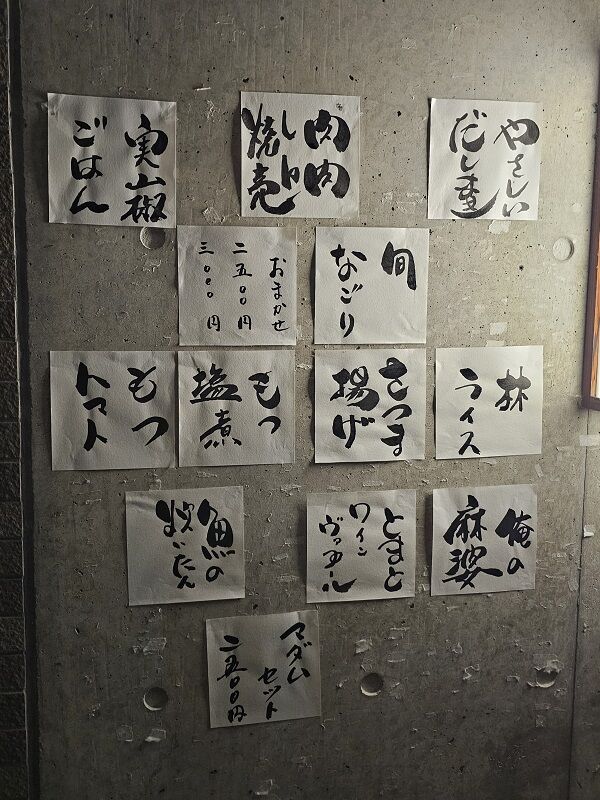 やさしい
だし巻
肉肉
しい
焼売
実山椒
ごはん
旬
なごり
おまかせ
二五〇〇円
三〇〇〇円
林
ライス
さつま
揚げ
もつ
塩煮
もつ
トマト
俺の
麻婆
とまと
ワイン
魚の
炊いたん
マダム
セット
二五〇〇円